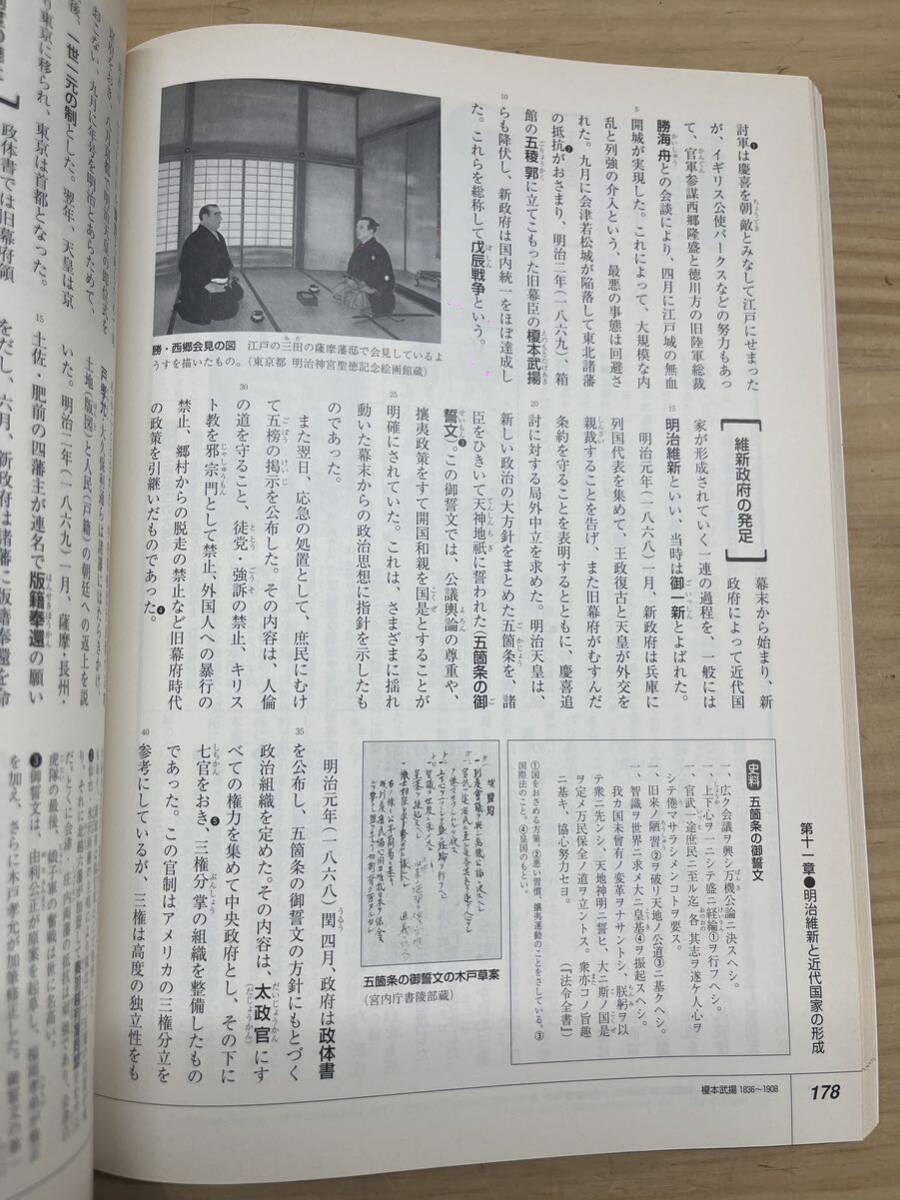 第十一章●明治維新と近代国家の形成
178
討軍は慶喜を朝敵とみなして江戸にせまった
が、イギリス公使パークスなどの努力もあっ
て、官軍参謀西郷隆盛と徳川方の旧陸軍総裁
勝海舟との会談により、四月に江戸城の無血
開城が実現した。これによって、大規模な内
乱と列強の介入という、最悪の事態は回避さ
れた。九月に会津若松城が陥落して東北諸藩
の抵抗がおさまり、明治二年(一八六九)、箱
館の五稜郭に立てこもった旧幕臣の榎本武揚
らも降伏し、新政府は国内統一をほぼ達成し
た。これらを総称して戊辰戦争という。
勝・西郷会見の図 江戸の三田の薩摩藩邸で会見しているよ
うすを描いたもの。(東京都 明治神宮聖徳記念絵画館蔵)
維新政府の発足
幕末から始まり、新
政府によって近代国
家が形成されていく一連の過程を、一般には
明治維新といい、当時は御一新とよばれた。
明治元年(一八六八)一月、新政府は兵庫に
列国代表を集めて、王政復古と天皇が外交を
親裁することを告げ、また旧幕府がむすんだ
条約を守ることを表明するとともに、慶喜追
討に対する局外中立を求めた。明治天皇は、
新しい政治の大方針をまとめた五箇条を、諸
臣をひきいて天神地祇に誓われた(五箇条の御
誓文)。この御誓文では、公議輿論の尊重や、
攘夷政策をすて開国和親を国是とすることが
明確にされていた。これは、さまざまに揺れ
動いた幕末からの政治思想に指針を示したも
のであった。
また翌日、応急の処置として、庶民にむけ
て五榜の掲示を公布した。その内容は、人倫
の道を守ること、徒党・強訴の禁止、キリス
ト教を邪宗門として禁止、外国人への暴行の
禁止、郷村からの脱走の禁止など旧幕府時代
の政策を引継いだものであった。
史料 五箇条の御誓文
一、広ク会議ヲ興シ万機公論ニ決スヘシ。
一、上下心ヲ一ニシテ盛ニ経綸①ヲ行フヘシ。
一、官武一途庶民ニ至ル迄各其志ヲ遂ケ人心ヲ
シテ倦マサラシメンコトヲ要ス。
一、旧来ノ陋習②ヲ破リ天地ノ公道③ニ基クヘシ。
一、智識ヲ世界ニ求メ大ニ皇基④ヲ振起スヘシ。
我カ国未曾有ノ変革ヲナサントシ、朕躬ヲ以
テ衆ニ先ンシ、天地神明ニ誓ヒ、大ニ斯ノ国是
ヲ定メ万民保全ノ道ヲ立ントス。衆亦コノ旨趣
ニ基キ、協心努力セヨ。 (『法令全書』)
①国をおさめる方策。②悪い習慣、攘夷運動のことをさしている。③
国際法のこと。④皇国のもとい。
五箇条の御誓文の木戸草案
(宮内庁書陵部蔵)
明治元年(一八六八)閏四月、政府は政体書
を公布し、五箇条の御誓文の方針にもとづく
政治組織を定めた。その内容は、太政官にす
べての権力を集めて中央政府とし、その下に
七官をおき、三権分掌の組織を整備したもの
であった。この官制はアメリカの三権分立を
参考にしているが、三権は高度の独立性をも
榎本武揚 1836〜1908
後、一世一元の制とした。翌年、天皇は京
り東京に移られ、東京は首都となった。
政体書では旧幕府領
土地(版図)と人民(戸籍)の朝廷への返上を説
いた。明治二年(一八六九)一月、薩摩・長州・
土佐・肥前の四藩主が連名で版籍奉還の願い
をだし、六月、新政府は諸藩に版籍奉還を命